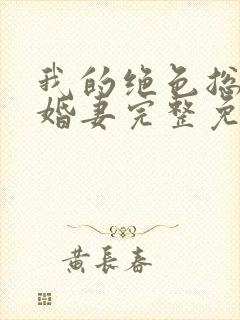 我的绝色总
婚妻完整免
黄长春